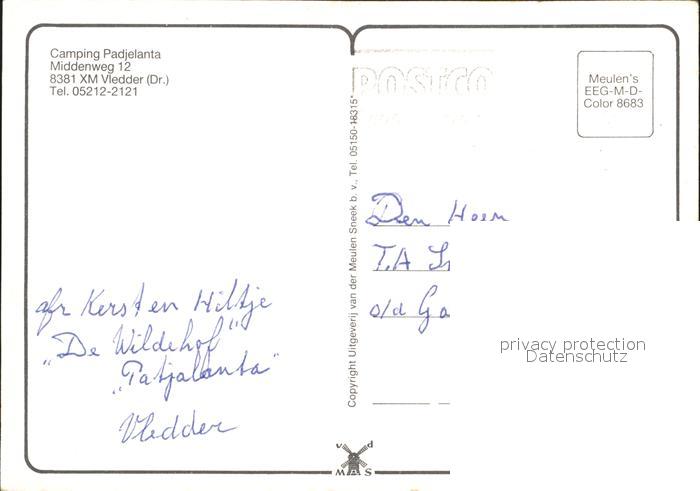 Camping Padjelanta
Middenweg 12
8381 XM Vledder (Dr.)
Tel. 05212-2121
afz Kerst en Hiltje
"De Wildehof"
"Patjalanta"
Vledder
Copyright Uitgeverij van der Meulen Sneek b. v., Tel. 05150-18315*
POSTCO
Meulen's
EEG-M-D-
Color 8683
Den Heer
T.A
o/d Ga
privacy protection
Datenschutz
v d
MAS